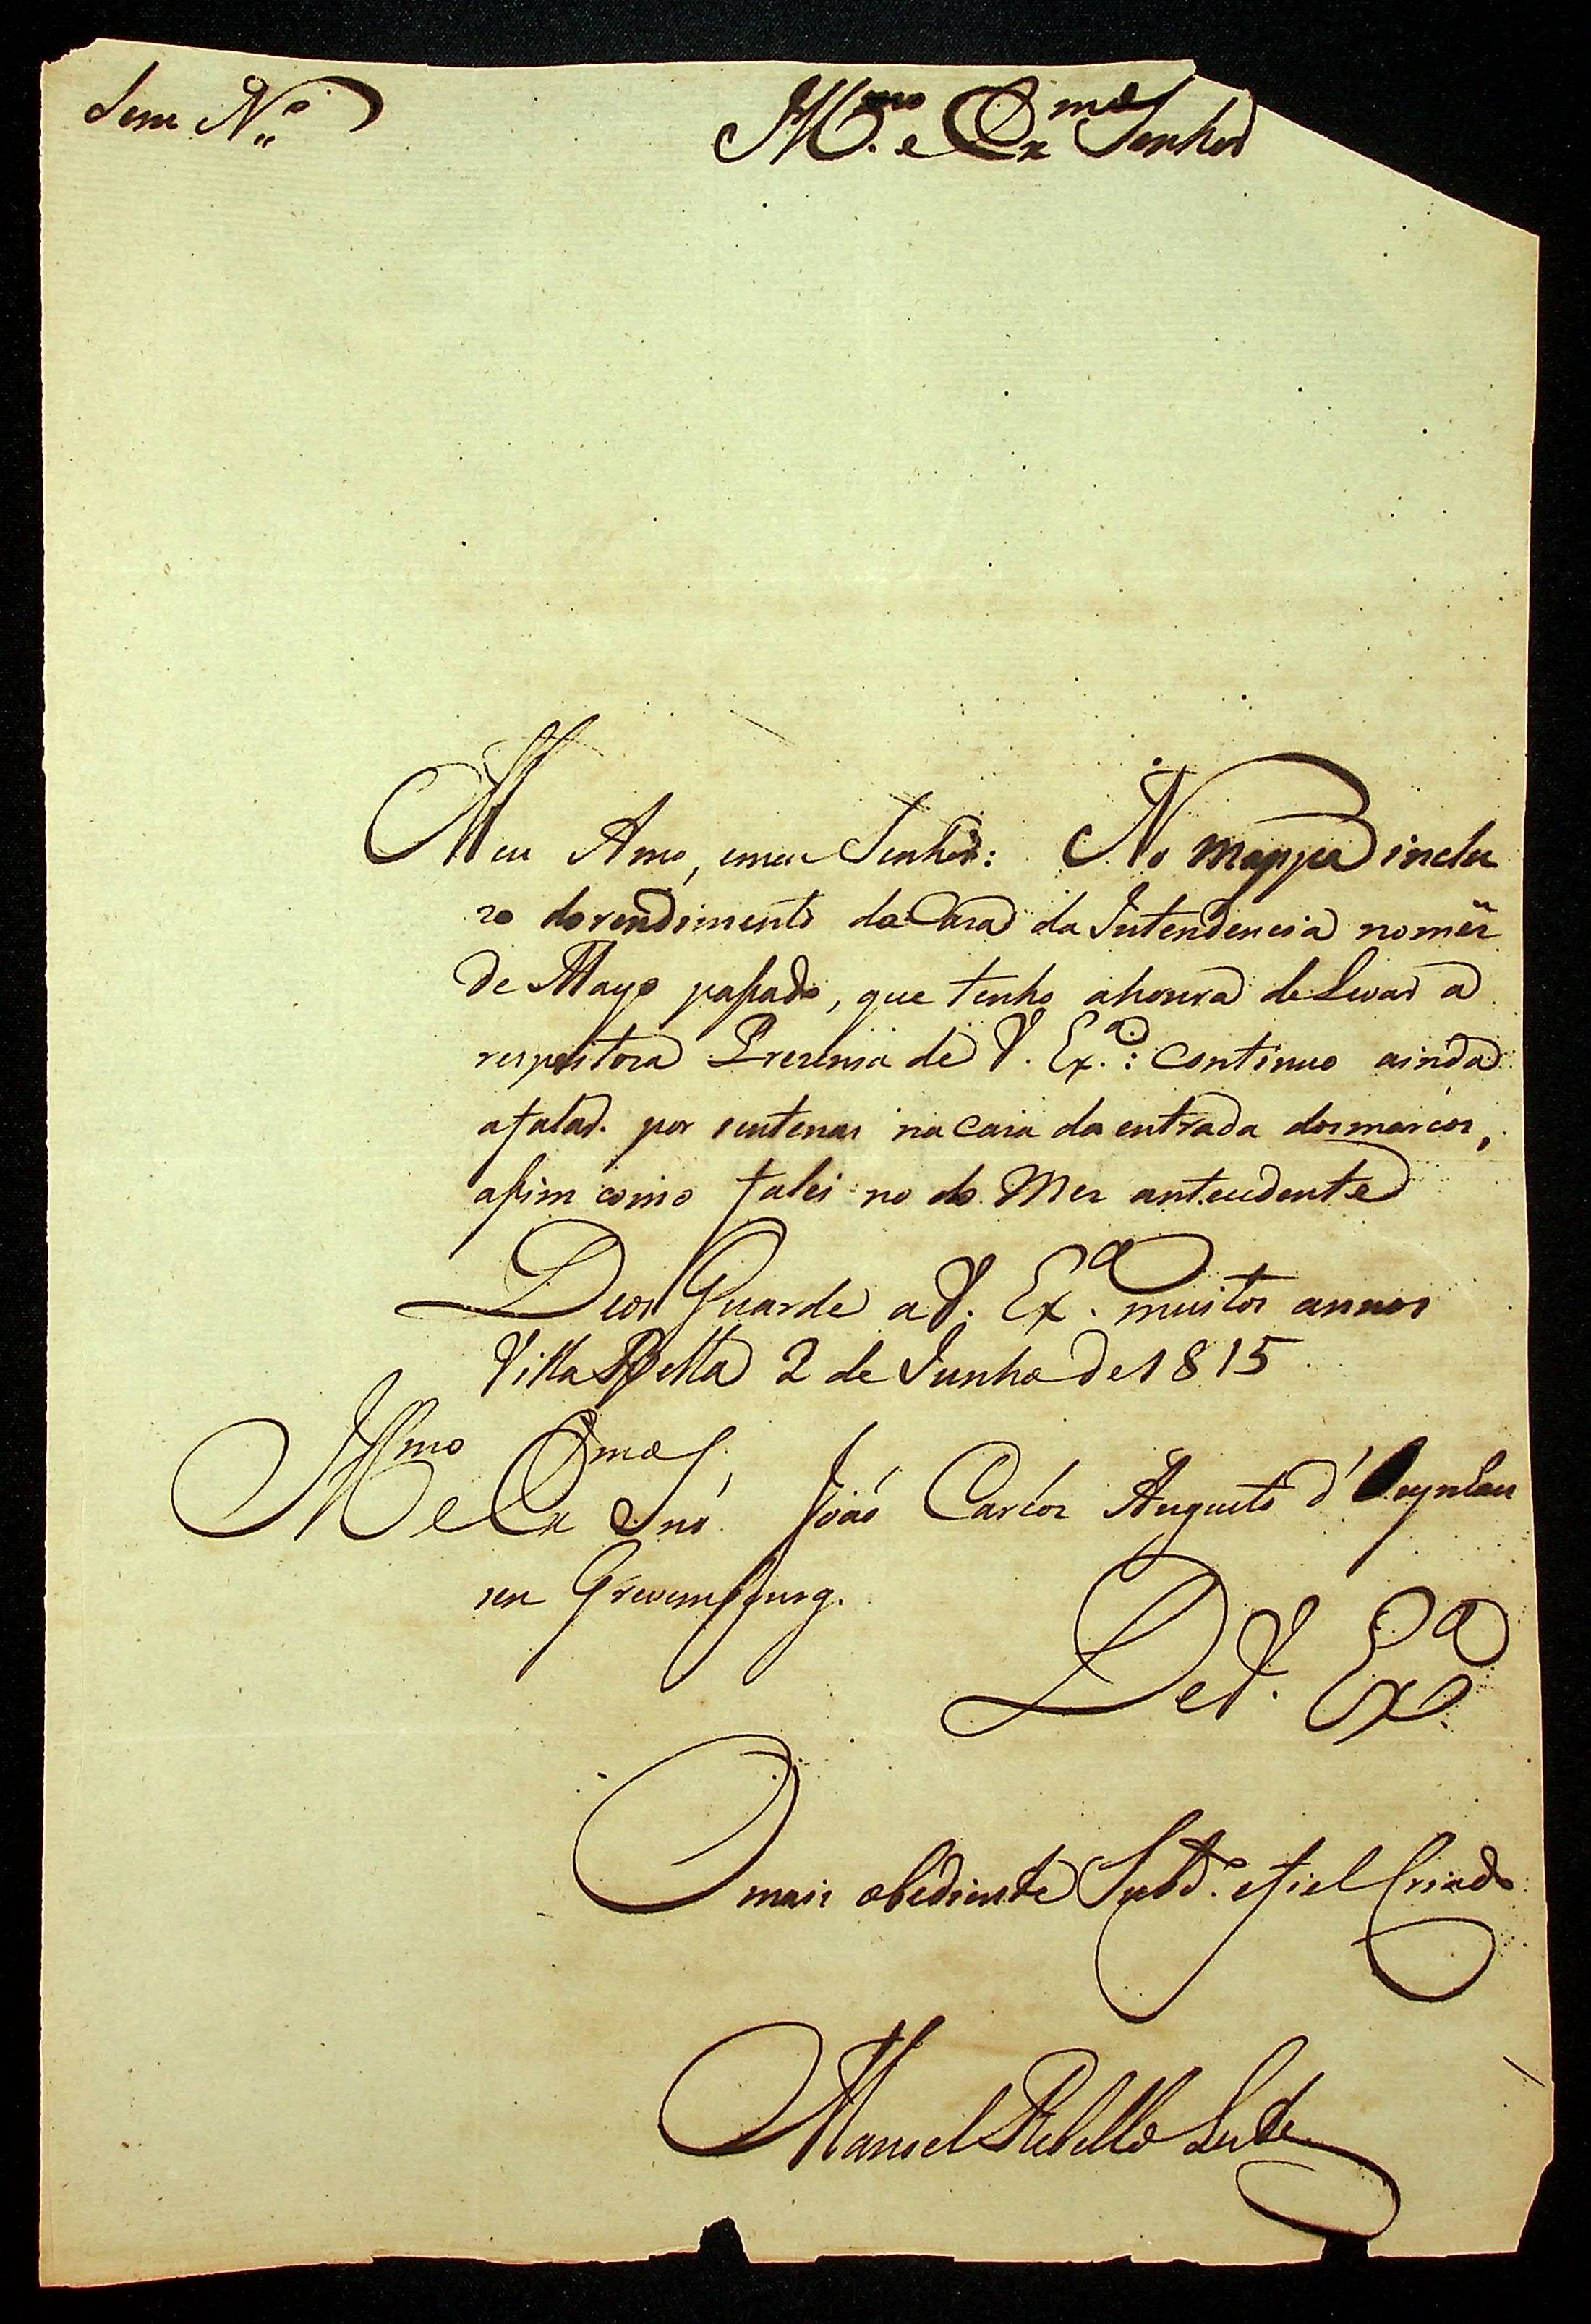 Sem N.º
Ill.mo e Ex.mo Senhor
Meu Amo, emeu Senhor: No Mappa inclu
zo do rendimento da Caza da Intendencia no mez
de Mayo passado, que tenho ahonra de Levar a
respeitoza Prezensa de V. Ex.ª: continuo ainda
afalar. por sentenas na casa da entrada dos marcos,
assim como falei no do Mez antecedente
Deos Guarde a V. Ex.ª muitos annos
Villa Bella 2 de Junho de 1815
Ill.mo e Ex.mo Snr. João Carlos Augusto d'Oeynhau
sen Grevemburg.
De V. Ex.ª
O mais obediente Subd.º efiel Criado
Manoel Rebello Leite